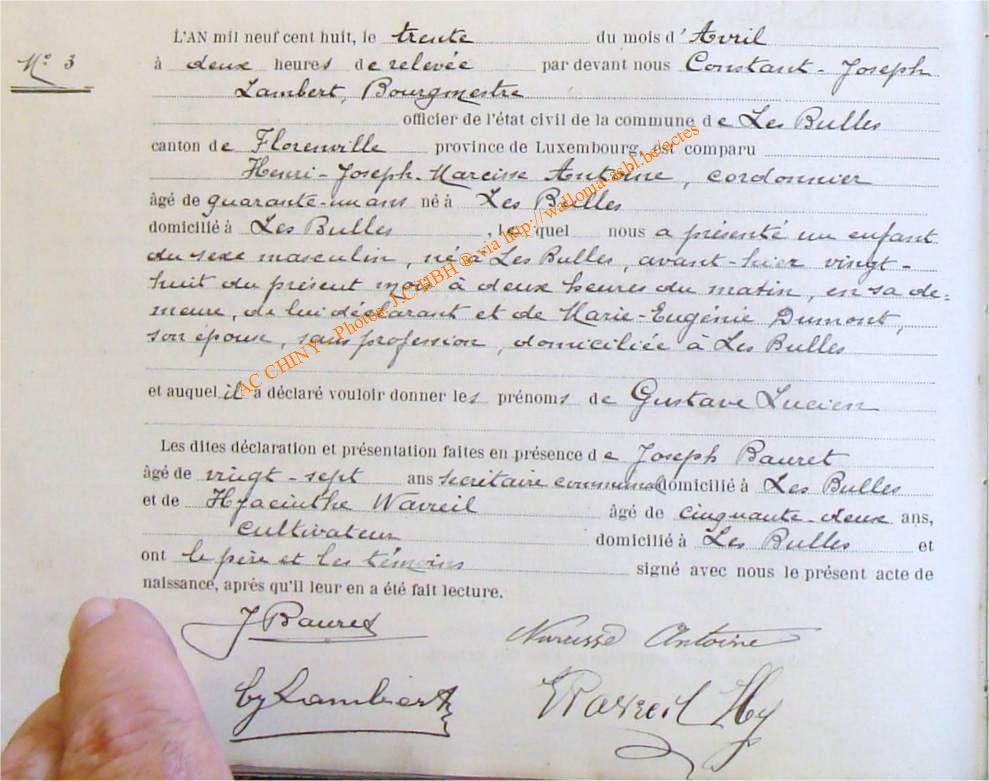 N° 3
L'AN mil neuf cent huit, le trente du mois d'Avril
à deux heures de relevée par devant nous Constant-Joseph
Lambert, Bourgmestre
officier de l'état civil de la commune de Les Bulles
canton de Florenville province de Luxembourg, est comparu
Henri-Joseph-Narcisse Antoine, cordonnier
âgé de quarante-un ans né à Les Bulles
domicilié à Les Bulles, lequel nous a présenté un enfant
du sexe masculin, né à Les Bulles, avant-hier vingt-
huit du présent mois à deux heures du matin, en sa de=
meure, de lui déclarant et de Marie-Eugénie Dumont,
son épouse, sans profession, domiciliée à Les Bulles
et auquel il a déclaré vouloir donner les prénoms de Gustave Lucien
Les dites déclaration et présentation faites en présence de Joseph Bauret
âgé de vingt-sept ans secrétaire communal domicilié à Les Bulles
et de Hyacinthe Wavreil âgé de cinquante-deux ans,
cultivateur domicilié à Les Bulles et
ont le père et les témoins signé avec nous le présent acte de
naissance, après qu'il leur en a été fait lecture.
J Bauret Narcisse Antoine
Cj Lambert Wavreil Hy
AC CHINY - Photos J.C.HBH ® via http://wallonia-asbl.be/actes